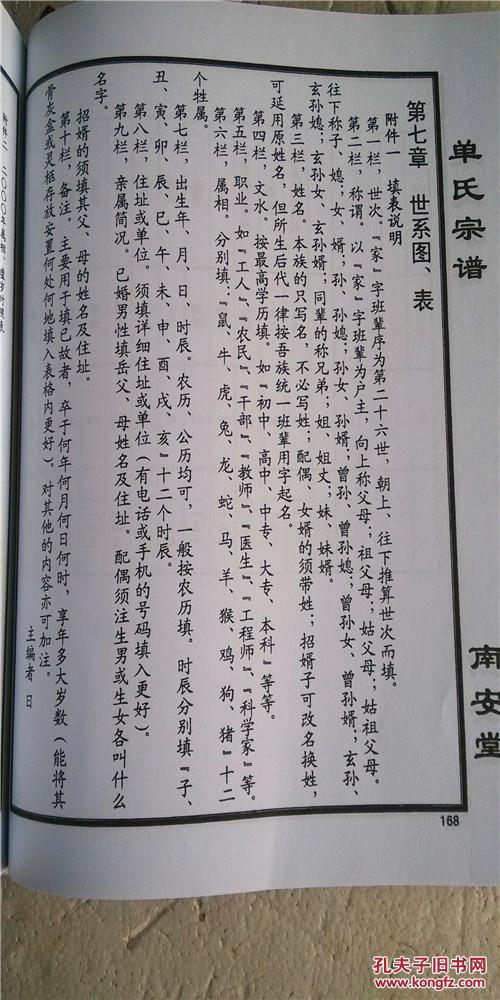 单氏宗谱
南安堂
168
第七章 世系图、表
附件一 填表说明
第一栏，世次。『家』字班辈序为第二十六世，朝上、往下推算世次而填。
第二栏，称谓。以『家』字班辈为户主，向上称父母；祖父母；姑父母；姑祖父母。
往下称子、媳；女、婿；孙、孙媳；孙女、孙婿；曾孙、曾孙媳；曾孙女、曾孙婿；玄孙、
玄孙媳；玄孙女、玄孙婿；同辈的称兄弟；姐、姐丈；妹、妹婿。
第三栏，姓名。本族的只写名，不必写姓；配偶、女婿的须带姓；招婿子可改名换姓，
可延用原姓名，但所生后代一律按吾族统一班辈用字起名。
第四栏，文水。按最高学历填。如『初中、高中、中专、大专、本科』等等。
第五栏，职业。如『工人』、『农民』、『干部』、『教师』、『医生』、『工程师』、『科学家』等。
第六栏，属相。分别填：『鼠、牛、虎、兔、龙、蛇、马、羊、猴、鸡、狗、猪』十二
个牲属。
第七栏，出生年、月、日、时辰。农历、公历均可，一般按农历填。时辰分别填『子、
丑、寅、卯、辰、巳、午、未、申、酉、戌、亥』十二个时辰。
第八栏，住址或单位。须填详细住址或单位（有电话或手机的号码填入更好）。
第九栏，亲属简况。已婚男性填岳父、母姓名及住址。配偶须注生男或生女各叫什么
名字。
招婿的须填其父、母的姓名及住址。
第十栏，备注。主要用于填已故者，卒于何年何月何日何时，享年多大岁数（能将其
骨灰盒或灵柩存放安置何处何地填入表格内更好）。对其他的内容亦可加注。
主编者 日
附件二 二〇〇〇年属相、
孔夫子旧书网
www.kongfz.com